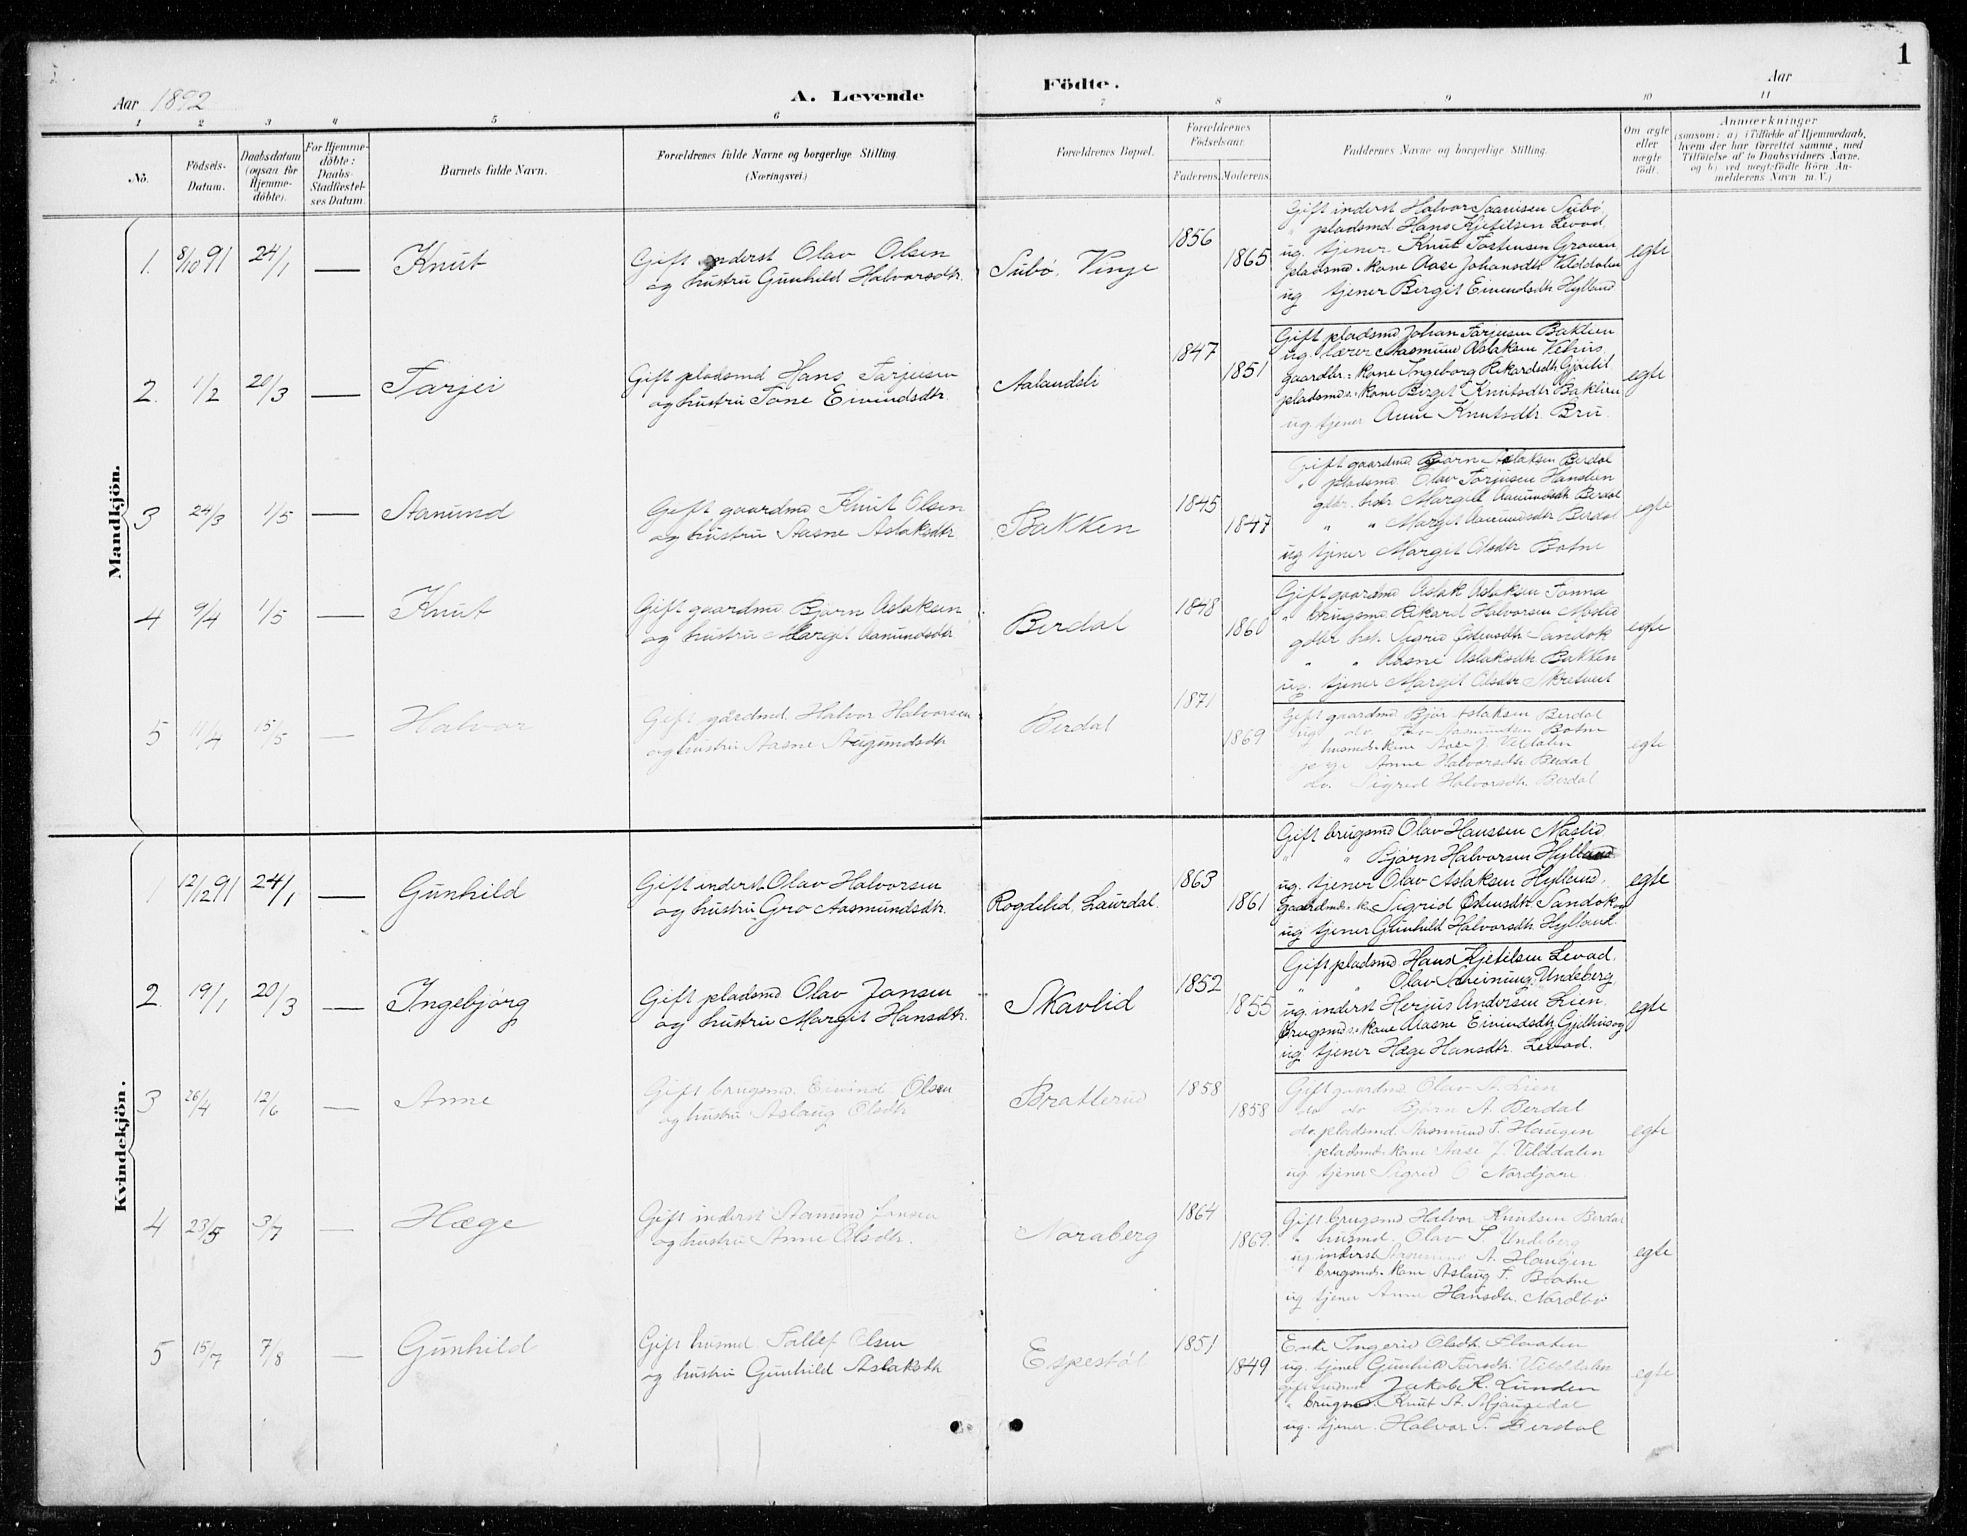 1
Aar 1892
A. Levende Födte.
Aar
1 2 3 4 5 6 7 8 9 10 11
No.
Födsels-
Datum.
Daabsdatum
(ogsaa for
Hjemme-
döbte).
For Hjemme-
döbte:
Daabs-
Stadfæstel-
ses Datum.
Barnets fulde Navn.
Forældrenes fulde Navne og borgerlige Stilling
(Næringsvei.)
Forældrenes Bopæl.
Forældrenes
Födselsaar.
Faderens. Moderens.
Faddernes Navne og borgerlige Stilling.
Om ægte
eller
uægte
födt.
Anmærkninger
(saasom: a) i Tilfælde af Hjemmedaab,
hvem der har forrettet samme, med
Tilföielse af to Daabsvidners Navne,
og b) ved uægtefödte Börn An-
melderens Navn m. V.)
Mandkjön.
1. 8/10 91 24/1 — Knut
Gift inderst Olav Olsen
og hustru Gunhild Halvorsdtr.
Subö, Vinje
1856
1865
Gift inderst Halvor Subö
" pladsmd Hans Kjetilsen Levad
ug. tjener Knut Tostensen Groven
pladsmd.kone Aase Johansdtr Vilddalen
ug tjener Bergit Eivindsdtr Hylland
egte
2. 1/2 20/3 — Tarjei
Gift pladsmd Hans Tarjeisen
og hustru Tone Eivindsdtr.
Aalandsli
1847
1851
Gift pladsmd Johan Tarjeisen Baklien
ug. lærer Aasmund Aslaksen Vehus
gaardbr.-kone Ingeborg Rikardsdtr
pladsmds.kone Berget Knutsdtr Baklien
ug. tjener Anne Knutsdtr. Bru
egte
3 24/3 1/5 — Aanund
Gift gaardmd Knut Olsen
og hustru Aasne Aslaksdtr
Bakken
1845
1847
Gift gaardmd Bjørn Aslaksen Berdal
" pladsmd. Olav Tarjeisen Hanslien
gdbr. hstr. Margit Aanundsdtr Berdal
" " Margit Aanundsdtr Berdal
ug tjener Margit Olsdtr Botne
egte
4 9/4 1/5 — Knut
Gift gaardmd Bjørn Aslaksen
og hustru Margit Aanundsdtr
Berdal
1848
1860
Gift gaardmd Aslak Aslaksen Tonna
" brugsmd Rikard Halvorsen Møslid
gdbr hst. Sigrid Østensdtr Sandok
" " Aasne Aslaksdtr Bakken
ug. tjener Margit Olsdtr Skretveit
egte
5 11/4 15/5 — Halvor
Gift gårdmd. Halvor Halvorsen
og hustru Aasne Augundsdtr
Berdal
1871
1869
Gift gaardmd Bjør Aslaksen Berdal
ug do. Aasmundsen Botne
husmds kone Aase J. Vildalen
Anne Halvorsdtr Berdal
do. Sigrid Halvorsdtr. Berdal
egte
Kvindekjön.
1 12/12 91 24/1 — Gunhild
Gift inderst Olav Halvorsen
og hustru Gro Aasmundsdtr.
Rogdelid, Laurdal.
1863
1861
Gift brugsmd Olav Hanssen Møslid
" " Bjørn Halvorsen Hylland
ug. tjener Olav Aslaksen Hylland.
gaardmds.k. Sigrid Østensdtr Sandok og
ug tjener Gunhild Halvorsdtr Hylland.
egte
2 19/1 20/3 — Ingebjørg
Gift pladsmd Olav Jansen
og hustru Margit Hansdtr.
Skavlid
1852
1855
Gift pladsmd Hans Kjetilsen Levad,
" " Olav Undeberg,
ug. inderst Herjus Andersen Lien.
Brugsmds.kone Aasne Eivindsdtr Gjelhus og
ug tjener Hæge Hansdtr. Levad.
egte
3 26/4 12/6 — Anne
Gift brugsmd. Eivind Olsen
og hustru Aslaug Olsdtr
Bratterud
1858
1858
Gift gaardmd Olav A. Lien
do do Bjørn A. Berdal
do. pladsmd. Aasmund T. Haugen
pladsmds kone Aase J. Vilddalen
ug tjener Sigrid O Nordjore
egte
4 23/5 3/7 — Hæge
Gift inderst Aamund Jansen
og hustru Anne Olsdtr.
Noraberg
1864
1869.
Gift brugsmd Halvor Knutsen Berdal
" husmd. Olav S. Undeberg
ug inderst Aasmund A. Haugen
brugsmds.kone Aslaug T. Botne
ug tjener Anne Hansdtr. Nordbø
egte
5 15/7 7/8 — Gunhild
Gift husmd Tallef Olsen
og hustru Gunhild Aslaksdtr
Espestøl
1851
1849
Enke Ingerid Olsdtr. Flovaten
ug. tjener Gunhild Toresdtr. Vilddalen
gift husmd Jakob K. Lunden
" brugsmd. Knut A. Mjaugedal
ug. tjener Halvor T. Berdal
egte